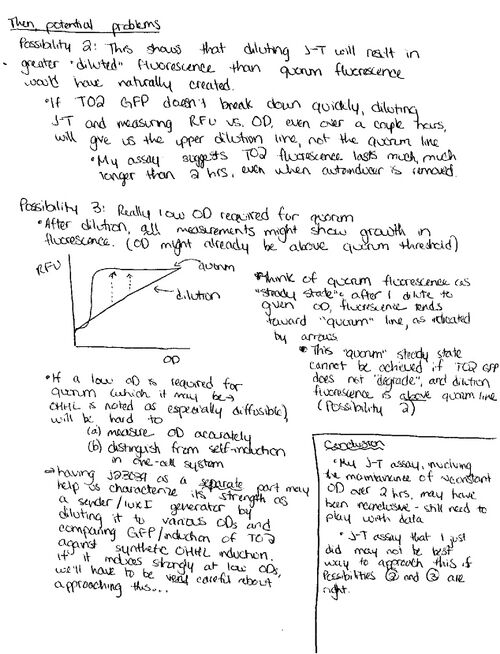 Then, potential problems
Possibility 2: This shows that diluting J-T will result in
greater "diluted" fluorescence than quorum fluorescence
would have naturally created.
• If TO2 GFP doesn't break down quickly, diluting
J-T and measuring RFU vs. OD, even over a couple hours,
will give us the upper dilution line, not the quorum line
• My assay suggests TO2 fluorescence lasts much, much
longer than 2 hrs, even when autoinducer is removed.
Possibility 3: Really low OD required for quorum
• After dilution, all measurements might show growth in
fluorescence. (OD might already be above quorum threshold)
RFU
quorum
dilution
OD
• Think of quorum fluorescence as
"steady state": after I dilute to
given OD, fluorescence tends
toward "quorum" line, as indicated
by arrows.
• This "quorum" steady state
cannot be achieved if TO2 GFP
does not "degrade", and dilution
fluorescence is above quorum line
(Possibility 2)
• If a low OD is required for
quorum (which it may be →
OHHL is noted as especially diffusible),
will be hard to
(a) measure OD accurately
(b) distinguish from self-induction
in one-cell system
→ having J23039 as a separate part may
help us characterize its strength as
a sender/luxI generator by
diluting it to various ODs and
comparing GFP/induction of TO2
against synthetic OHHL induction.
If it induces strongly at low ODs,
we'll have to be very careful about
approaching this...
Conclusion
• My J-T assay, involving
the maintenance of constant
OD over 2 hrs, may have
been inconclusive - still need to
play with data
• J-T assay that I just
did may not be best
way to approach this if
Possibilities ② and ③ are
right.